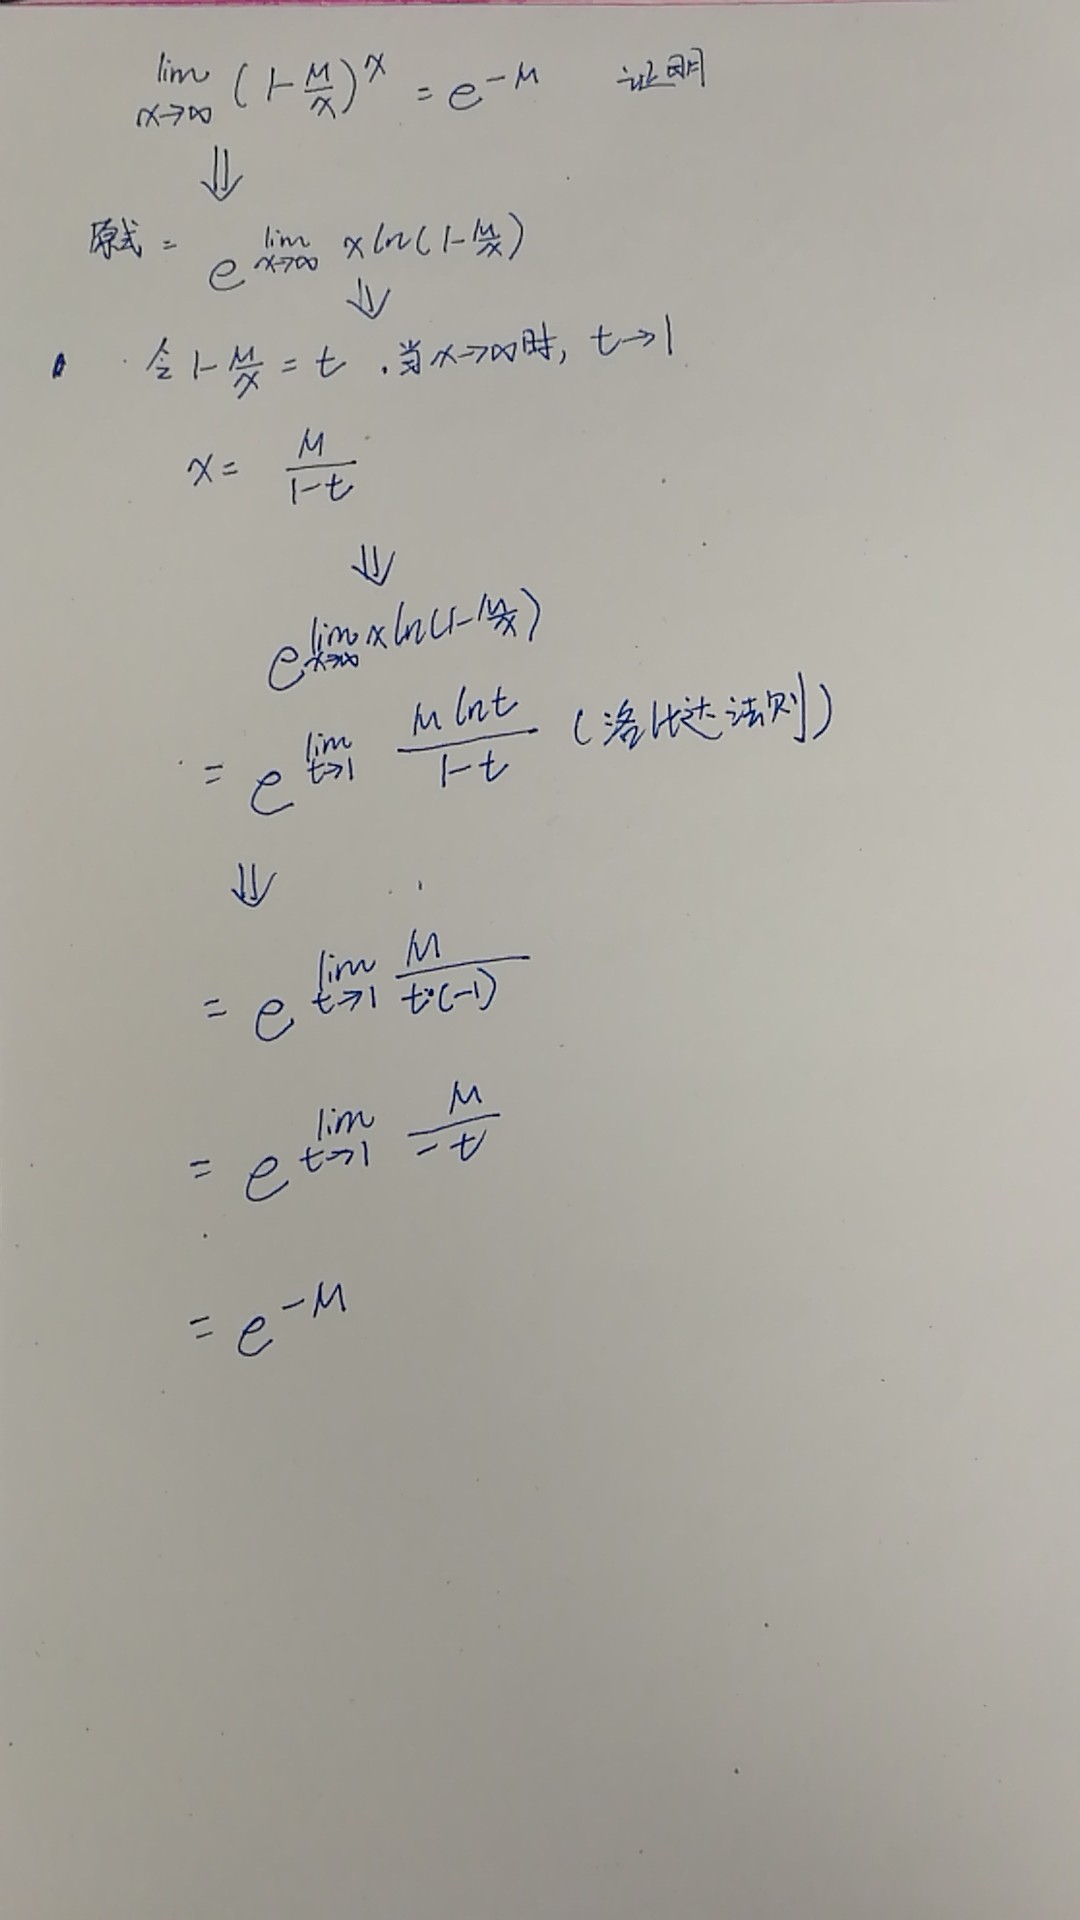 lim x→∞ (1-μ/x)^x = e^-μ 证明
⇓
原式 = e^lim x→∞ x ln(1-μ/x)
⇓
令 1-μ/x = t . 当x→∞时, t→1
x = μ/(1-t)
⇓
e^lim x→∞ x ln(1-μ/x)
= e^lim t→1 μ ln t/(1-t) (洛比达法则)
⇓
= e^lim t→1 μ/(t·(-1))
= e^lim t→1 μ/(-t)
= e^-μ